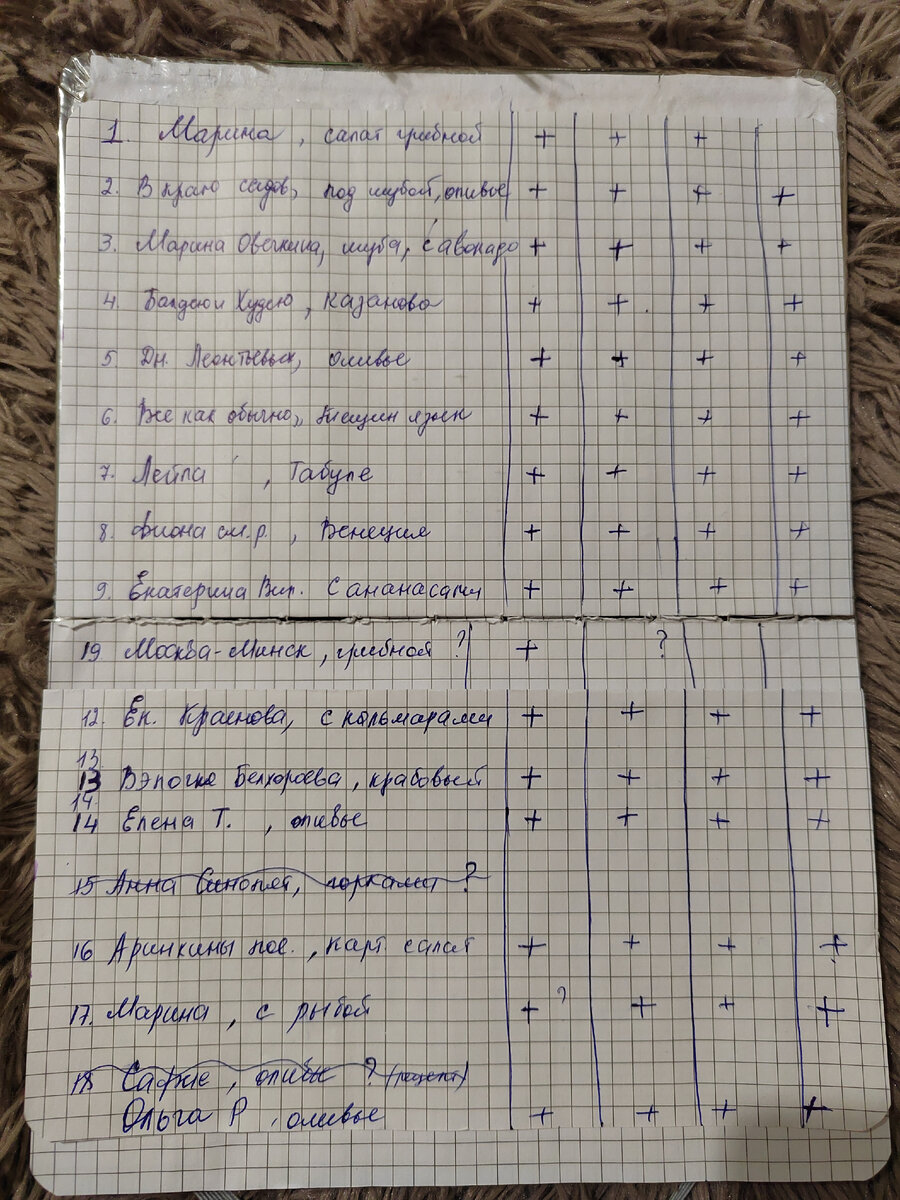 1. Марина, салат грибной + + +
2. В краю садов, под шубой, оливье + + + +
3. Марина Овечкина, шуба, с авокадо + + + +
4. Худею, Казанова + + + +
5 Дн. Леонтьевых, оливье + + + +
6. Все как обычно, Тещин язык + + + +
7. Лейла, Табуле + + + +
8. Фиона см.р., Венеция + + + +
9. Екатерина Вип. С ананасами + + + +
19 Москва-Минск, грибной ? + ?
12. Ек. Краснова, с кальмарами + + + +
13
13 Белхороева, крабовый + + + +
14
14 Елена Т., оливье + + + +
15 Анна ?
16 Аринкины пос., карт. салат + + + +
17. Марина, с рыбой + ? + + +
18 оливье ? (рецепт)
Ольга Р, оливье + + + +